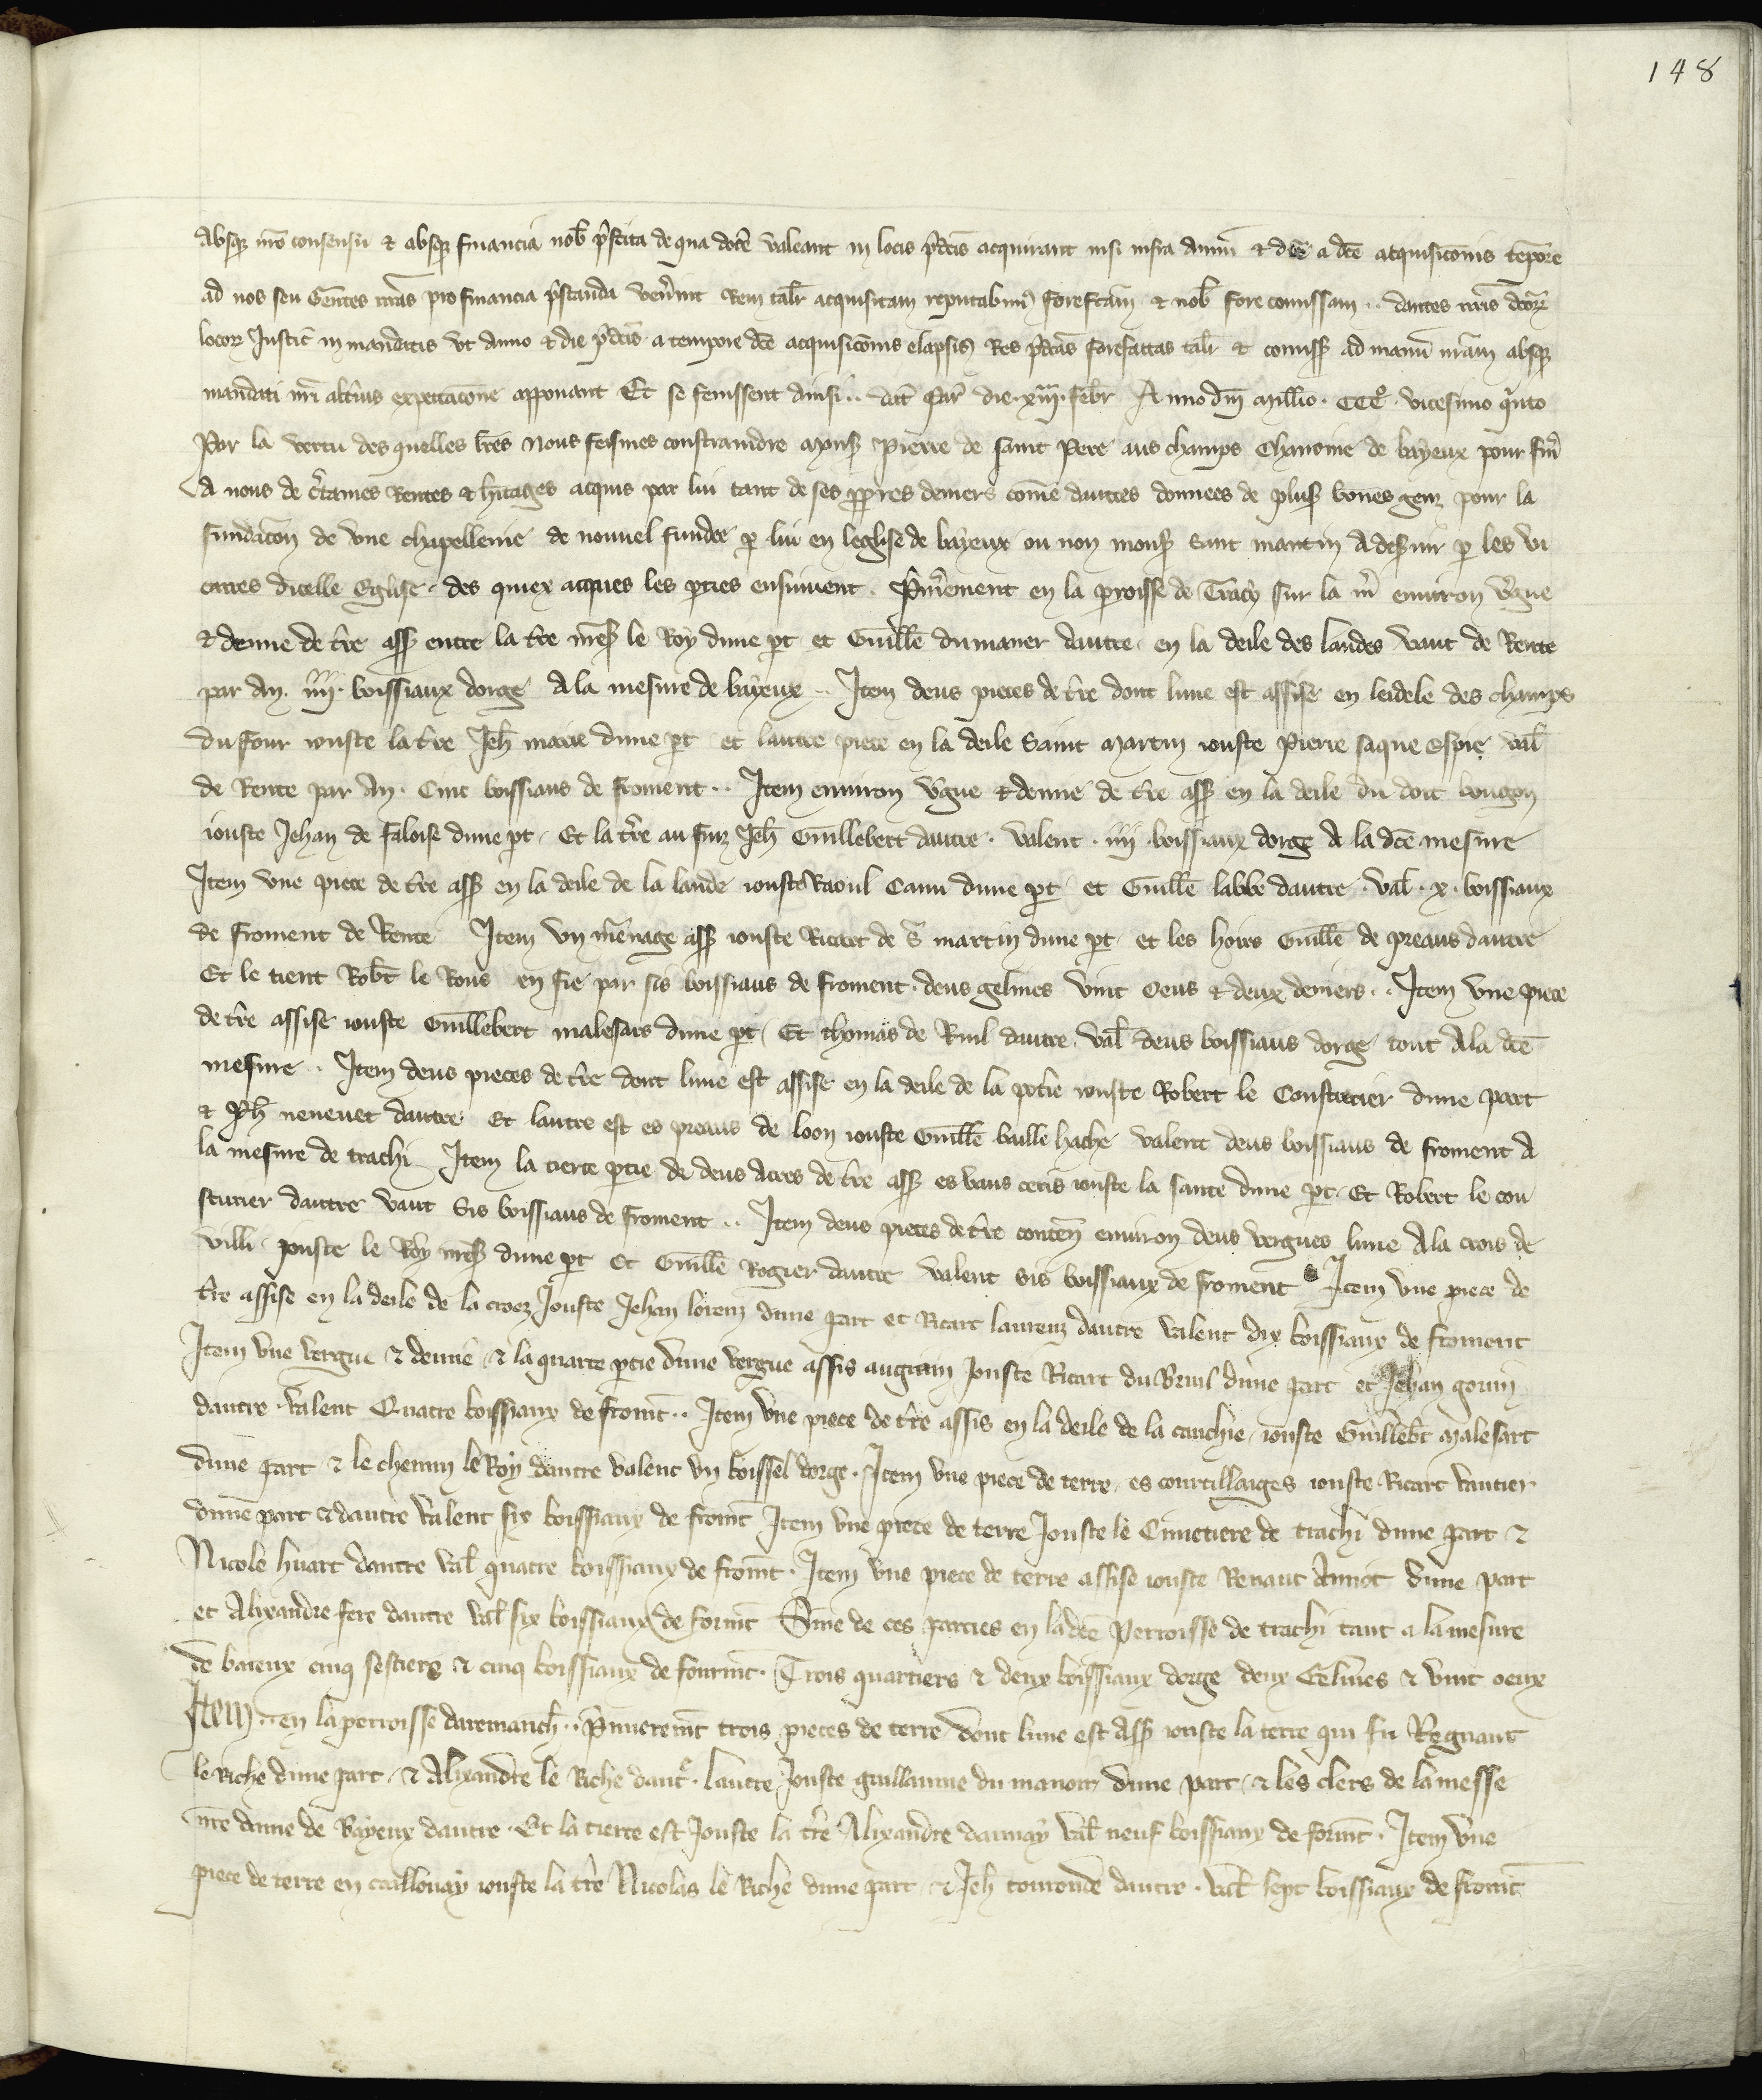 148
absq̢ nr̄o consensu ⁊ absq̢ financia nob̄ p̄stita de qua docē valeant in locis p̄dcīs acquirant nisi infra annū ⁊ diē a dcē acquisicōnis tēpore
ad nos seu Gentes nr̄as pro financia p̄standa ven̄int Rem talr̄ acquisitam reputabimꝰ forefcām ⁊ nob̄ fore comissam .. dantes nr̄is dcōꝝ
locoꝝ Justic̄ in mandatis vt anno ⁊ die p̄dcīs a tempore dcē acquisicōnis elapsis Res p̄dcās forefactas talr̄ ⁊ comiss̄ ad manū nr̄am absq̢
mandati nr̄i altīus expectacōne apponant Et se fenissent ainsi .. dat̄ Par̄ die xiiii. febr̄ Anno dn̄i Millīo. CCCº. vicesimo q̄nto
Par la vertu des quelles lr̄es nous feismes constraindre Mons̄ Pierre de saint Pere aus champs Chanoine de bayeux pour fin̄
a nous de c̄taines Rentes ⁊ h̄itages acquis par lui tant de ses p̄pres deniers come dautres donnees de plus̄ bones genz pour la
fundacōn de vne chapellenie de nouuel fundee p̱ lui en leglise de bayeux ou non mons̄ saint martin a des̄uir p̱ les vi
caires dicelle Eglise. des quiex acques les p̱ties ensuiuent. P̄m̄erement en la p̱roisse de Tracy sur la m̄ enuiron v̄gue
⁊ demie de t̄re ass̄ entre la t̄re mes̄ le Roy dune p̱t et Guill̄e du maner dautre en la deile des landes vaut de Rente
par an. iiii. boissiaux dorge a la mesure de bayeux .. Item deus pieces de t̄re dont lune est assise en leidele des champs
du four iouste la t̄re Jeh̄ marie dune p̱t et lautre piece en la deile Saint Martin iouste Pierre saque espie val̄
de Rente par an. Cinc boissiaus de froment .. Item enuiron v̄gue ⁊ demie de t̄re ass̄ en la deile du doit bougon
iouste Jehan de faloise dune p̱t. Et la t̄re au fuiz Jeh̄ Guillebert dautre. valent. iiii. boissiaux dorge a la dcē mesure
Item vne piece de t̄re ass̄ en la deile de la lande iouste Raoul Canu dune p̱t et Guill̄e labbe dautre. val̄. x. boissiaux
de froment de Rente Item vn m̄enage ass̄ iouste Ricart de s̄ martin dune p̱t et les hoirs Guill̄e de preaus dautre
Et le tient Rob̄t le Rous en fie par sis boissiaus de froment. deus gelines vint oeus ⁊ deux deniers .. Item vne piece
de t̄re assise iouste Guillebert malesars dune p̱t. Et thomas de Ruil dautre val̄ deus boissiaus dorge tout a la dcē
mesure .. Item deus pieces de t̄re dont lune est assise en la deile de la p̱trie iouste Robert le Cousturier dune part
⁊ Ph̄ neneuet dautre Et lautre est es preaus de loon iouste Guill̄e baille hache valent deus boissiaus de froment a
la mesure de trachi Item la tierce p̱tie de deus acres de t̄re ass̄ es vaus ceris iouste la sante dune p̱t. Et Robert le cou
sturier dautre vaut Sis boissiaus de froment .. Item deus pieces de t̄re conten̄ enuiron deus vergues lune a la crois de
villi. iouste le Roy mes̄ dune p̱t Et Guill̄e Rogier dautre valent sis boissiaux de froment Item vne piece de
t̄re assise en la deile de la croez Jouste Jehan lorenz dune part et Ricart laurenz dautre valent dix boissiaux de froment
Item vne vergue ⁊ demie ⁊ la quarte p̱tie dune vergue assis au grain Jouste Ricart du Bruil dune part et Jehan gouin
dautre. valent Quatre boissiaux de from̄t .. Item vne piece de t̄re assis en la deile de la cauchie iouste Guilleb̄t Malesart
dune part ⁊ le chemin le Roy dautre valent vn boissel dorge. Item vne piece de terre es courtillaiges iouste Ricart vautier
dune part ⁊ dautre valent six boissiaux de from̄t Item vne piece de terre Jouste le Cimetiere de trachi dune part ⁊
Nicole huart dautre val̄ quatre boissiaux de from̄t. Item vne piece de terre assise iouste Renaut Amiot dune part
et Alixandre fere dautre val̄ six boissiaux de form̄t Sōme de ces parties en la dcē Perroisse de trachi tant a la mesure
de baieux cinq sestiers ⁊ cinq boissiaux de fourm̄t. Trois quartiers ⁊ deux boissiaux dorge deux Gelines ⁊ vint oeux
Item .. en la perroisse daremanch̄ .. P̄mierem̄t trois pieces de terre dont lune est ass̄ iouste la terre qui fu Regnaut
le Riche dune part. ⁊ Alixandre le Riche daut̄. lautre Jouste guillaume du manoir dune part. ⁊ les clers de la messe
nr̄e dame de Bayeux dautre. Et la tierce est Jouste la t̄re Alixandre daunay val̄ neuf boissiaux de form̄t. Item vne
piece de terre en caillouay iouste la t̄re Nicolas le Riche dune part ⁊ Jeh̄ toutonde dautre. val̄ sept boissiaux de from̄t